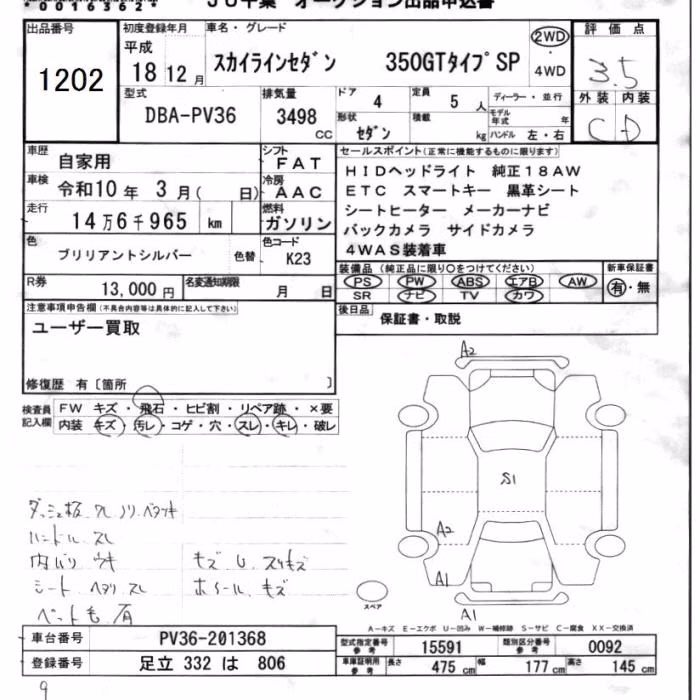 00163624
JU千葉 オークション出品申込書
出品番号 1202
初度登録年月 平成 18 12 月
車名・グレード スカイラインセダン 350GTタイプSP
2WD・4WD
評価点 3.5
外装 内装
C D
型式 DBA-PV36
排気量 3498 CC
ドア 4
定員 5 人
ディーラー・並行
モデル年式 年
形状 セダン
積載 kg
ハンドル 左・右
車歴 自家用
シフト FAT
車検 令和10年 3月( 日)
冷房 AAC
走行 14万6千965 km
燃料 ガソリン
色 ブリリアントシルバー 色替
色コード K23
R券 13,000 円
名変通知期限 月 日
セールスポイント(正常に機能するものに限ります)
HIDヘッドライト 純正18AW
ETC スマートキー 黒革シート
シートヒーター メーカーナビ
バックカメラ サイドカメラ
4WAS装着車
装備品(純正品に限り○をつけてください)
PS PW ABS エアB AW
SR ナビ TV カワ
新車保証書 有・無
後日品 保証書・取説
注意事項申告欄(不具合内容等は具体的に記入して下さい)
ユーザー買取
修復歴 有〔箇所 〕
検査員記入欄
FW キズ・飛石・ヒビ割・リペア跡・×要
内装 キズ・汚レ・コゲ・穴・スレ・キレ・破レ
ダッシュ板 スレ ノリ ベタツキ
ハンドル スレ
内バリ ウキ
シート ヘタリ スレ
ペット毛 有
キズ U スリキズ
ホイール キズ
A2
S1
A2
A1
A1
スペア
A-キズ E-エクボ U-凹み W-補修跡 S-サビ C-腐食 XX-交換済
車台番号 PV36-201368
登録番号 足立 332 は 806
型式指定番号 参考 15591
類別区分番号 参考 0092
車庫証明用 参考 長さ 475 cm 幅 177 cm 高さ 145 cm
9